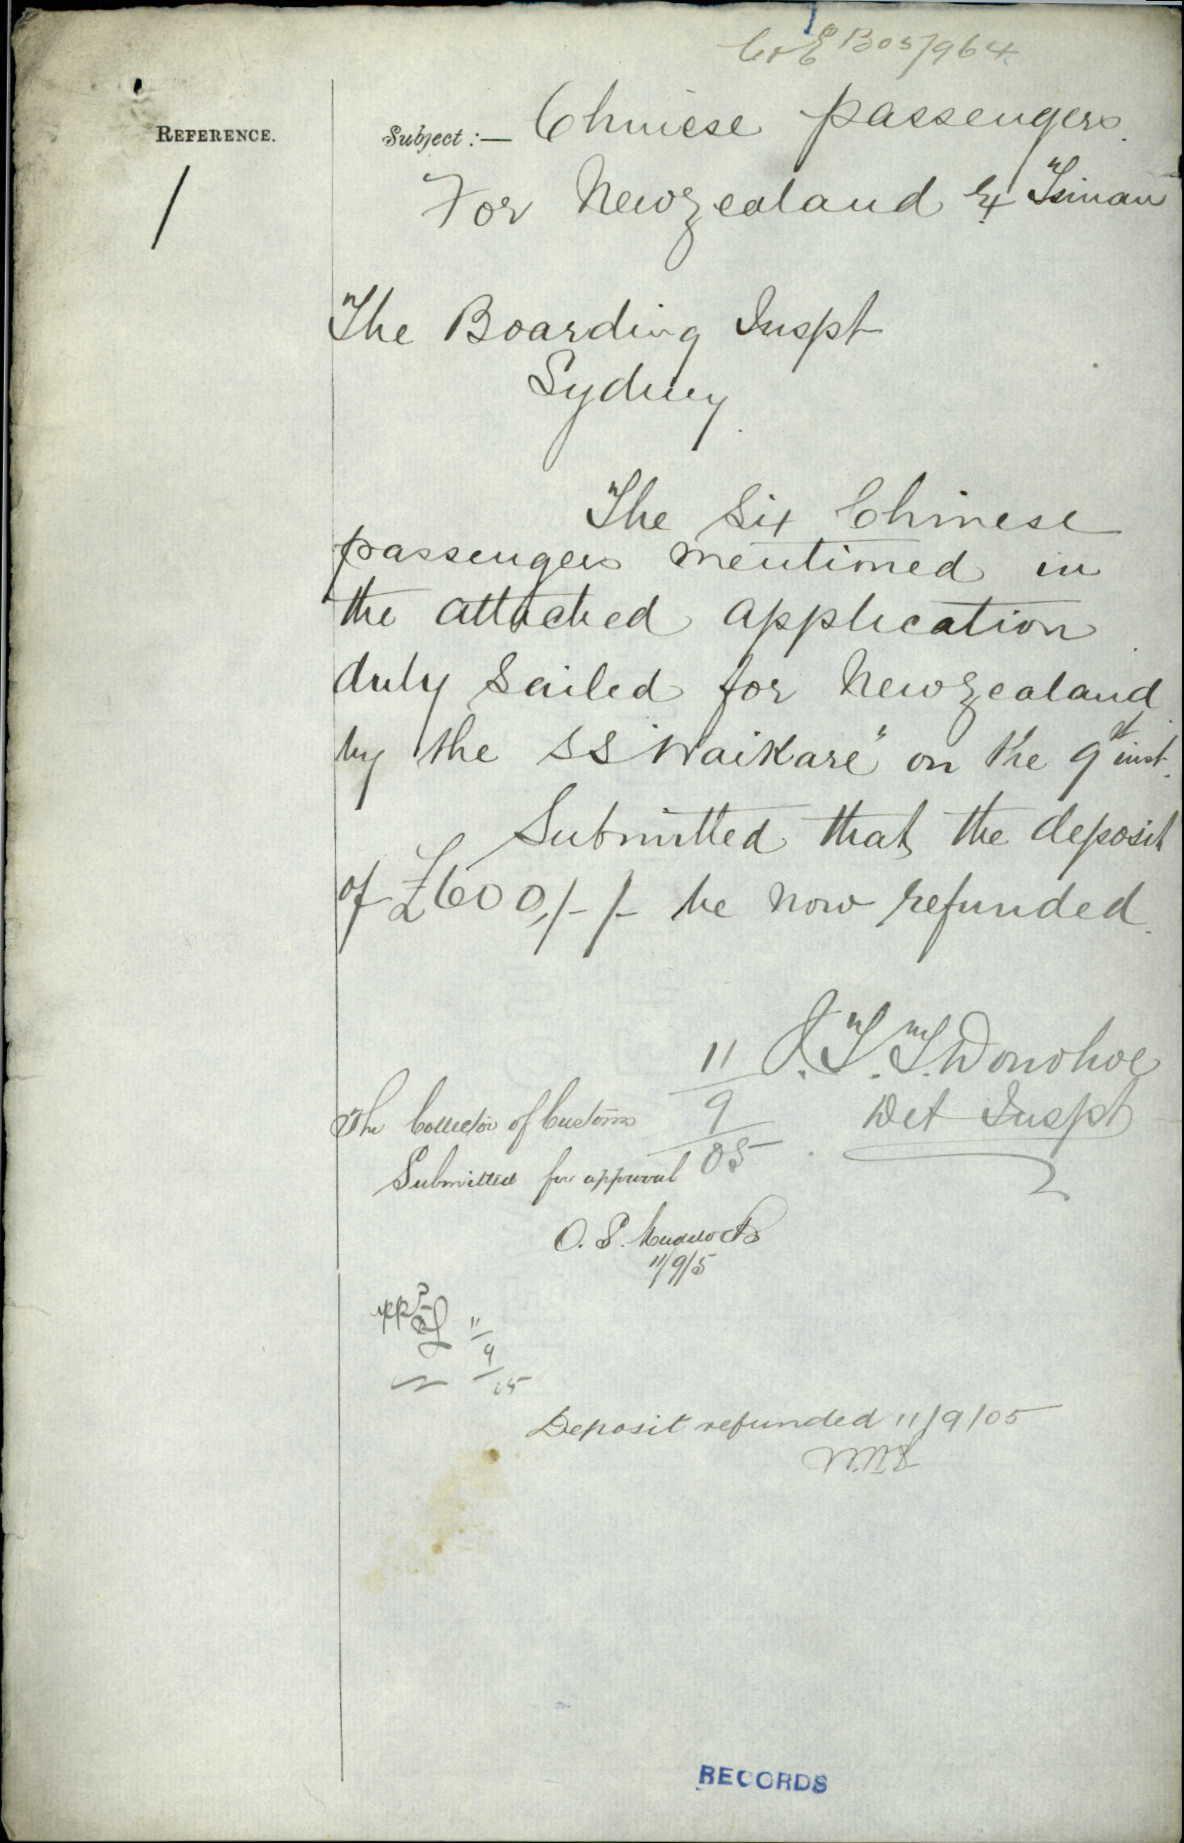 B05/964
REFERENCE.
Subject:— Chinese passengers
For Newzealand Ex "Tsinan
The Boarding Inspt
Sydney
The Six Chinese
passengers mentioned in
the attached application
duly sailed for Newzealand
by the SS "Waikare" on the 9th inst.
Submitted that the deposit
of £600/-/- be now refunded.
J. T. T. Donohoe
11/9/05
Det Inspt
The Collector of Customs
Submitted for approval
11/9/5
11/9/05
Deposit refunded 11/9/05
RECORDS